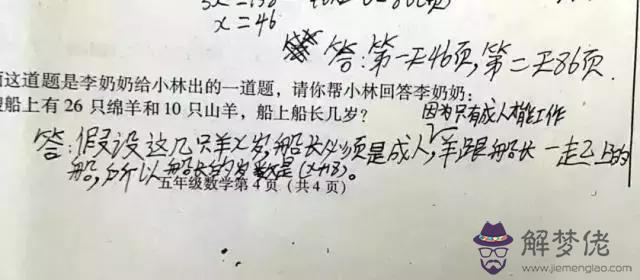 x=46
答:第一天46页,第二天86页.
面这道题是李奶奶给小林出的一道题，请你帮小林回答李奶奶：
船上有 26 只绵羊和 10 只山羊，船上船长几岁？
因为只有成人才能工作
答:假设这几只羊x岁,船长必须是成人,羊跟船长一起上的
船,所以船长的岁数是(x+18)。
五年级数学第 4 页（共 4 页）
解梦佬
www.jiemenglao.com